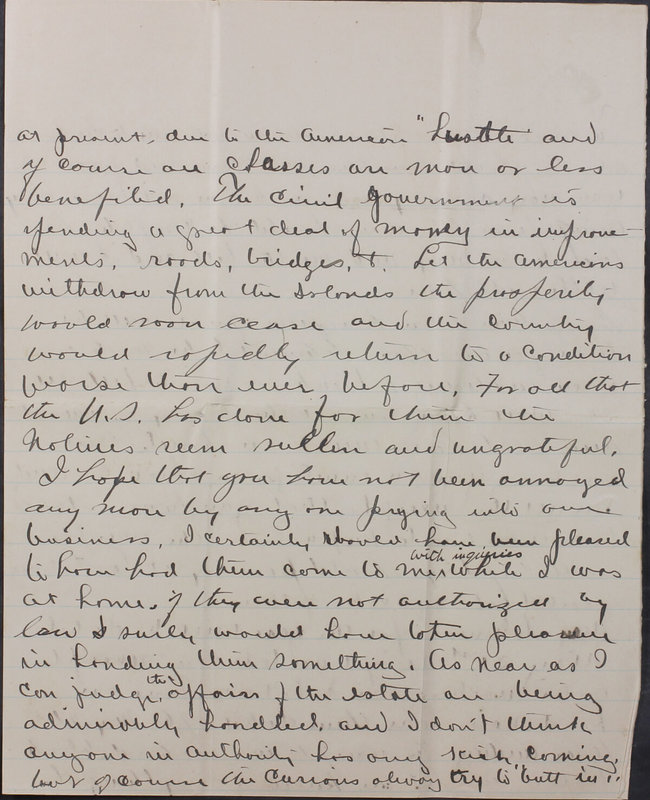 at present, due to the American "hustle" and
of course all classes are more or less
benefited. The civil government is
spending a great deal of money in improve-
ments, roads, bridges, &. Let the Americans
withdraw from the Islands the prosperity
would soon cease and the country
would rapidly return to a condition
worse than ever before. For all that
the U.S. has done for them the
natives seem sullen and ungrateful.
I hope that you have not been annoyed
any more by any one prying into our
business, I certainly should have been pleased
with inquiries
to have had them come to me while I was
at home. If they were not authorized by
law I surely would have taken pleasure
in handing them something. As near as I
can judge the affairs of the estate are being
admirably handled, and I don't think
anyone in authority has any "kick" coming,
but of course the curious always try to butt in".